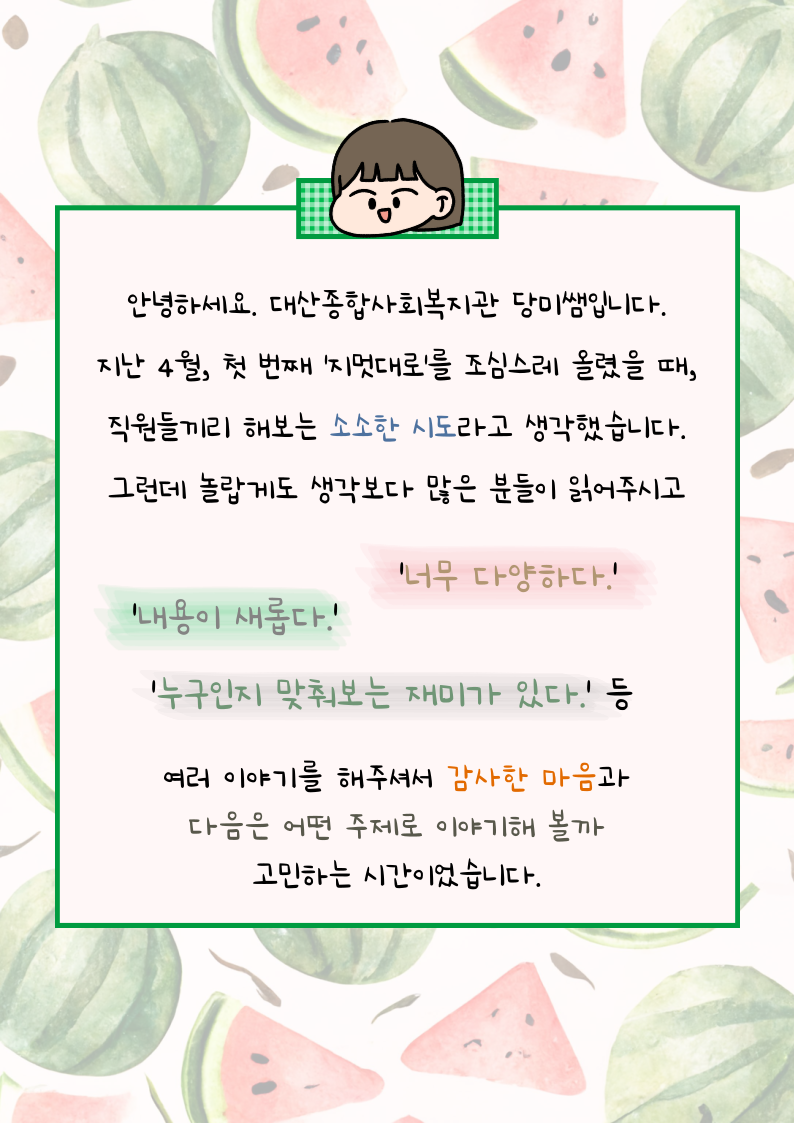 안녕하세요. 대산종합사회복지관 당미쌤입니다.
지난 4월, 첫 번째 '지멋대로'를 조심스레 올렸을 때,
직원들끼리 해보는 소소한 시도라고 생각했습니다.
그런데 놀랍게도 생각보다 많은 분들이 읽어주시고
'너무 다양하다.'
'내용이 새롭다.'
'누구인지 맞춰보는 재미가 있다.' 등
여러 이야기를 해주셔서 감사한 마음과
다음은 어떤 주제로 이야기해 볼까
고민하는 시간이었습니다.